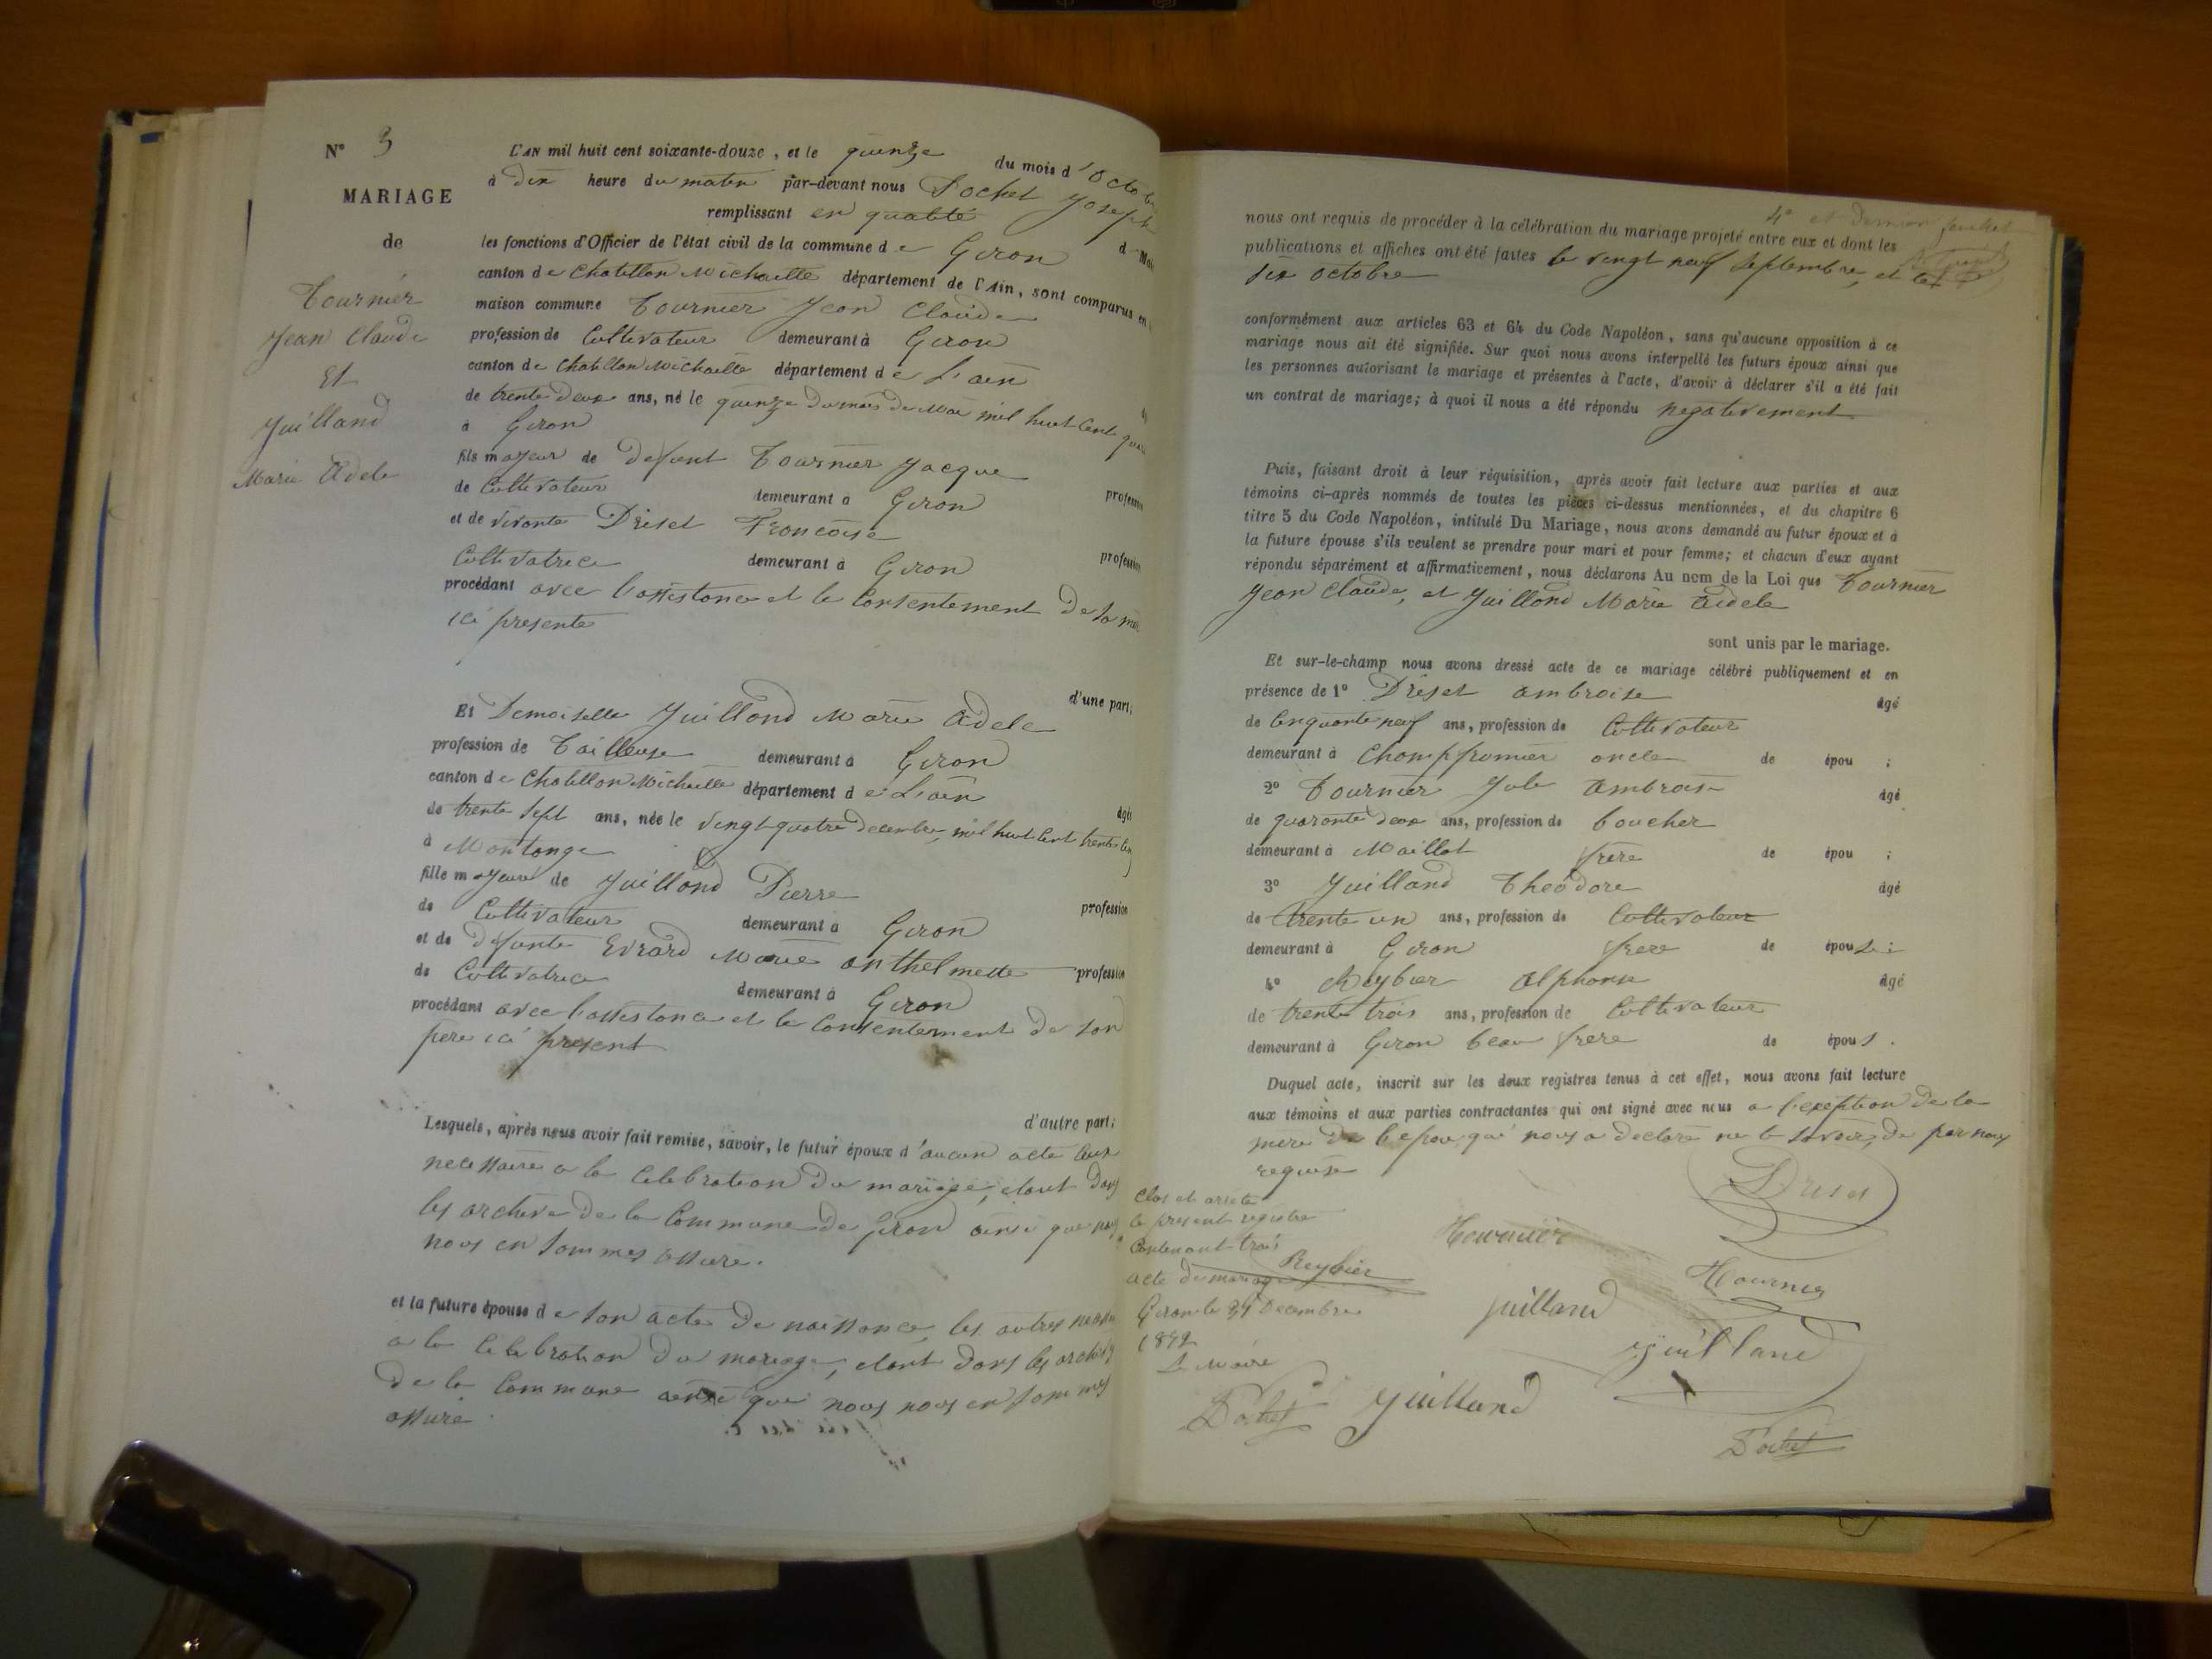 N° 3
MARIAGE
de
Tournier
Jean Claude
Et
Juilland
Marie Adele
L'AN mil huit cent soixante-douze, et le quinze du mois d'Octobre
à dix heure du matin par-devant nous Sochet Joseph
remplissant en qualité d Maire
les fonctions d'Officier de l'état civil de la commune de Giron
canton de Chatillon Michaille département de l'Ain, sont comparus en
maison commune Tournier Jean Claude
profession de Cultivateur demeurant à Giron
canton de Chatillon Michaille département de L'ain
de trente deux ans, né le quinze du mois de Mai mil huit cent
à Giron
fils majeur de defunt Tournier Jacque
de Cultivateur demeurant à Giron profession
et de vivante Driset Francoise
Cultivatrice demeurant à Giron profession
procédant avec l'assistance et le Consentement de sa mère
ici presente
d'une part;
Et Demoiselle Juilland Marie Adele
profession de Tailleuse demeurant à Giron
canton de Chatillon Michaille département de L'ain
de trente sept ans, née le vingt quatre decembre, mil huit cent trente
à Montange
fille majeure de Juilland Pierre
de Cultivateur demeurant à Giron profession
et de defunte Evrard Marie anthelmette profession
de Cultivatrice demeurant à Giron
procédant avec l'assistance et le Consentement de son
pere ici present
d'autre part;
Lesquels, après nous avoir fait remise, savoir, le futur époux d'aucun acte ceux
necessaire a la Celebration du mariage, etant dans
les archive de la Commune de Giron ainsi que nous
nous en sommes assure.
et la future épouse de son acte de naissance, les autres
a la Celebration du mariage, etant dans les archives
de la Commune ainsi que nous nous en sommes
assure
4e et dernier feuillet
nous ont requis de procéder à la célébration du mariage projeté entre eux et dont les
publications et affiches ont été faites le vingt neuf Septembre, et le
six octobre
conformément aux articles 63 et 64 du Code Napoléon, sans qu'aucune opposition à ce
mariage nous ait été signifiée. Sur quoi nous avons interpellé les futurs époux ainsi que
les personnes autorisant le mariage et présentes à l'acte, d'avoir à déclarer s'il a été fait
un contrat de mariage; à quoi il nous a été répondu negativement
Puis, faisant droit à leur réquisition, après avoir fait lecture aux parties et aux
témoins ci-après nommés de toutes les pièces ci-dessus mentionnées, et du chapitre 6
titre 5 du Code Napoléon, intitulé Du Mariage, nous avons demandé au futur époux et à
la future épouse s'ils veulent se prendre pour mari et pour femme; et chacun d'eux ayant
répondu séparément et affirmativement, nous déclarons Au nom de la Loi que Tournier
Jean Claude, et Juilland Marie Adele
sont unis par le mariage.
Et sur-le-champ nous avons dressé acte de ce mariage célébré publiquement et en
présence de 1° Driset ambroise âgé
de Cinquante neuf ans, profession de Cultivateur
demeurant à Champfromier oncle de épou ;
2° Tournier Jule Ambroise âgé
de quarante deux ans, profession de boucher
demeurant à Maillat frère de épou ;
3° Juilland Theódore âgé
de trente un ans, profession de Cultivateur
demeurant à Giron frere de épouse ;
4° Reybier Alphonse âgé
de trente trois ans, profession de Cultivateur
demeurant à Giron beau frere de épous .
Duquel acte, inscrit sur les deux registres tenus à cet effet, nous avons fait lecture
aux témoins et aux parties contractantes qui ont signé avec nous a l'exeption de la
mere de l'epou qui nous a declaré ne le savoir, de par nous
requise
Clos et arrete
le present registre
Contenant trois
acte de mariage
Giron le 31 Decembre
1872
Le Maire
Sochet
Driset
Tournier
Reybier
Tournier
Juilland
Juilland
Juilland
Sochet